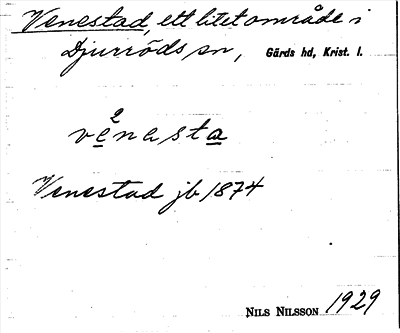 Venestad, ett litet område i
Djurröds sn, Gärds hd, Krist. l.
2
vẹ̊nasta
Venestad jb 1874
NILS NILSSON 1929